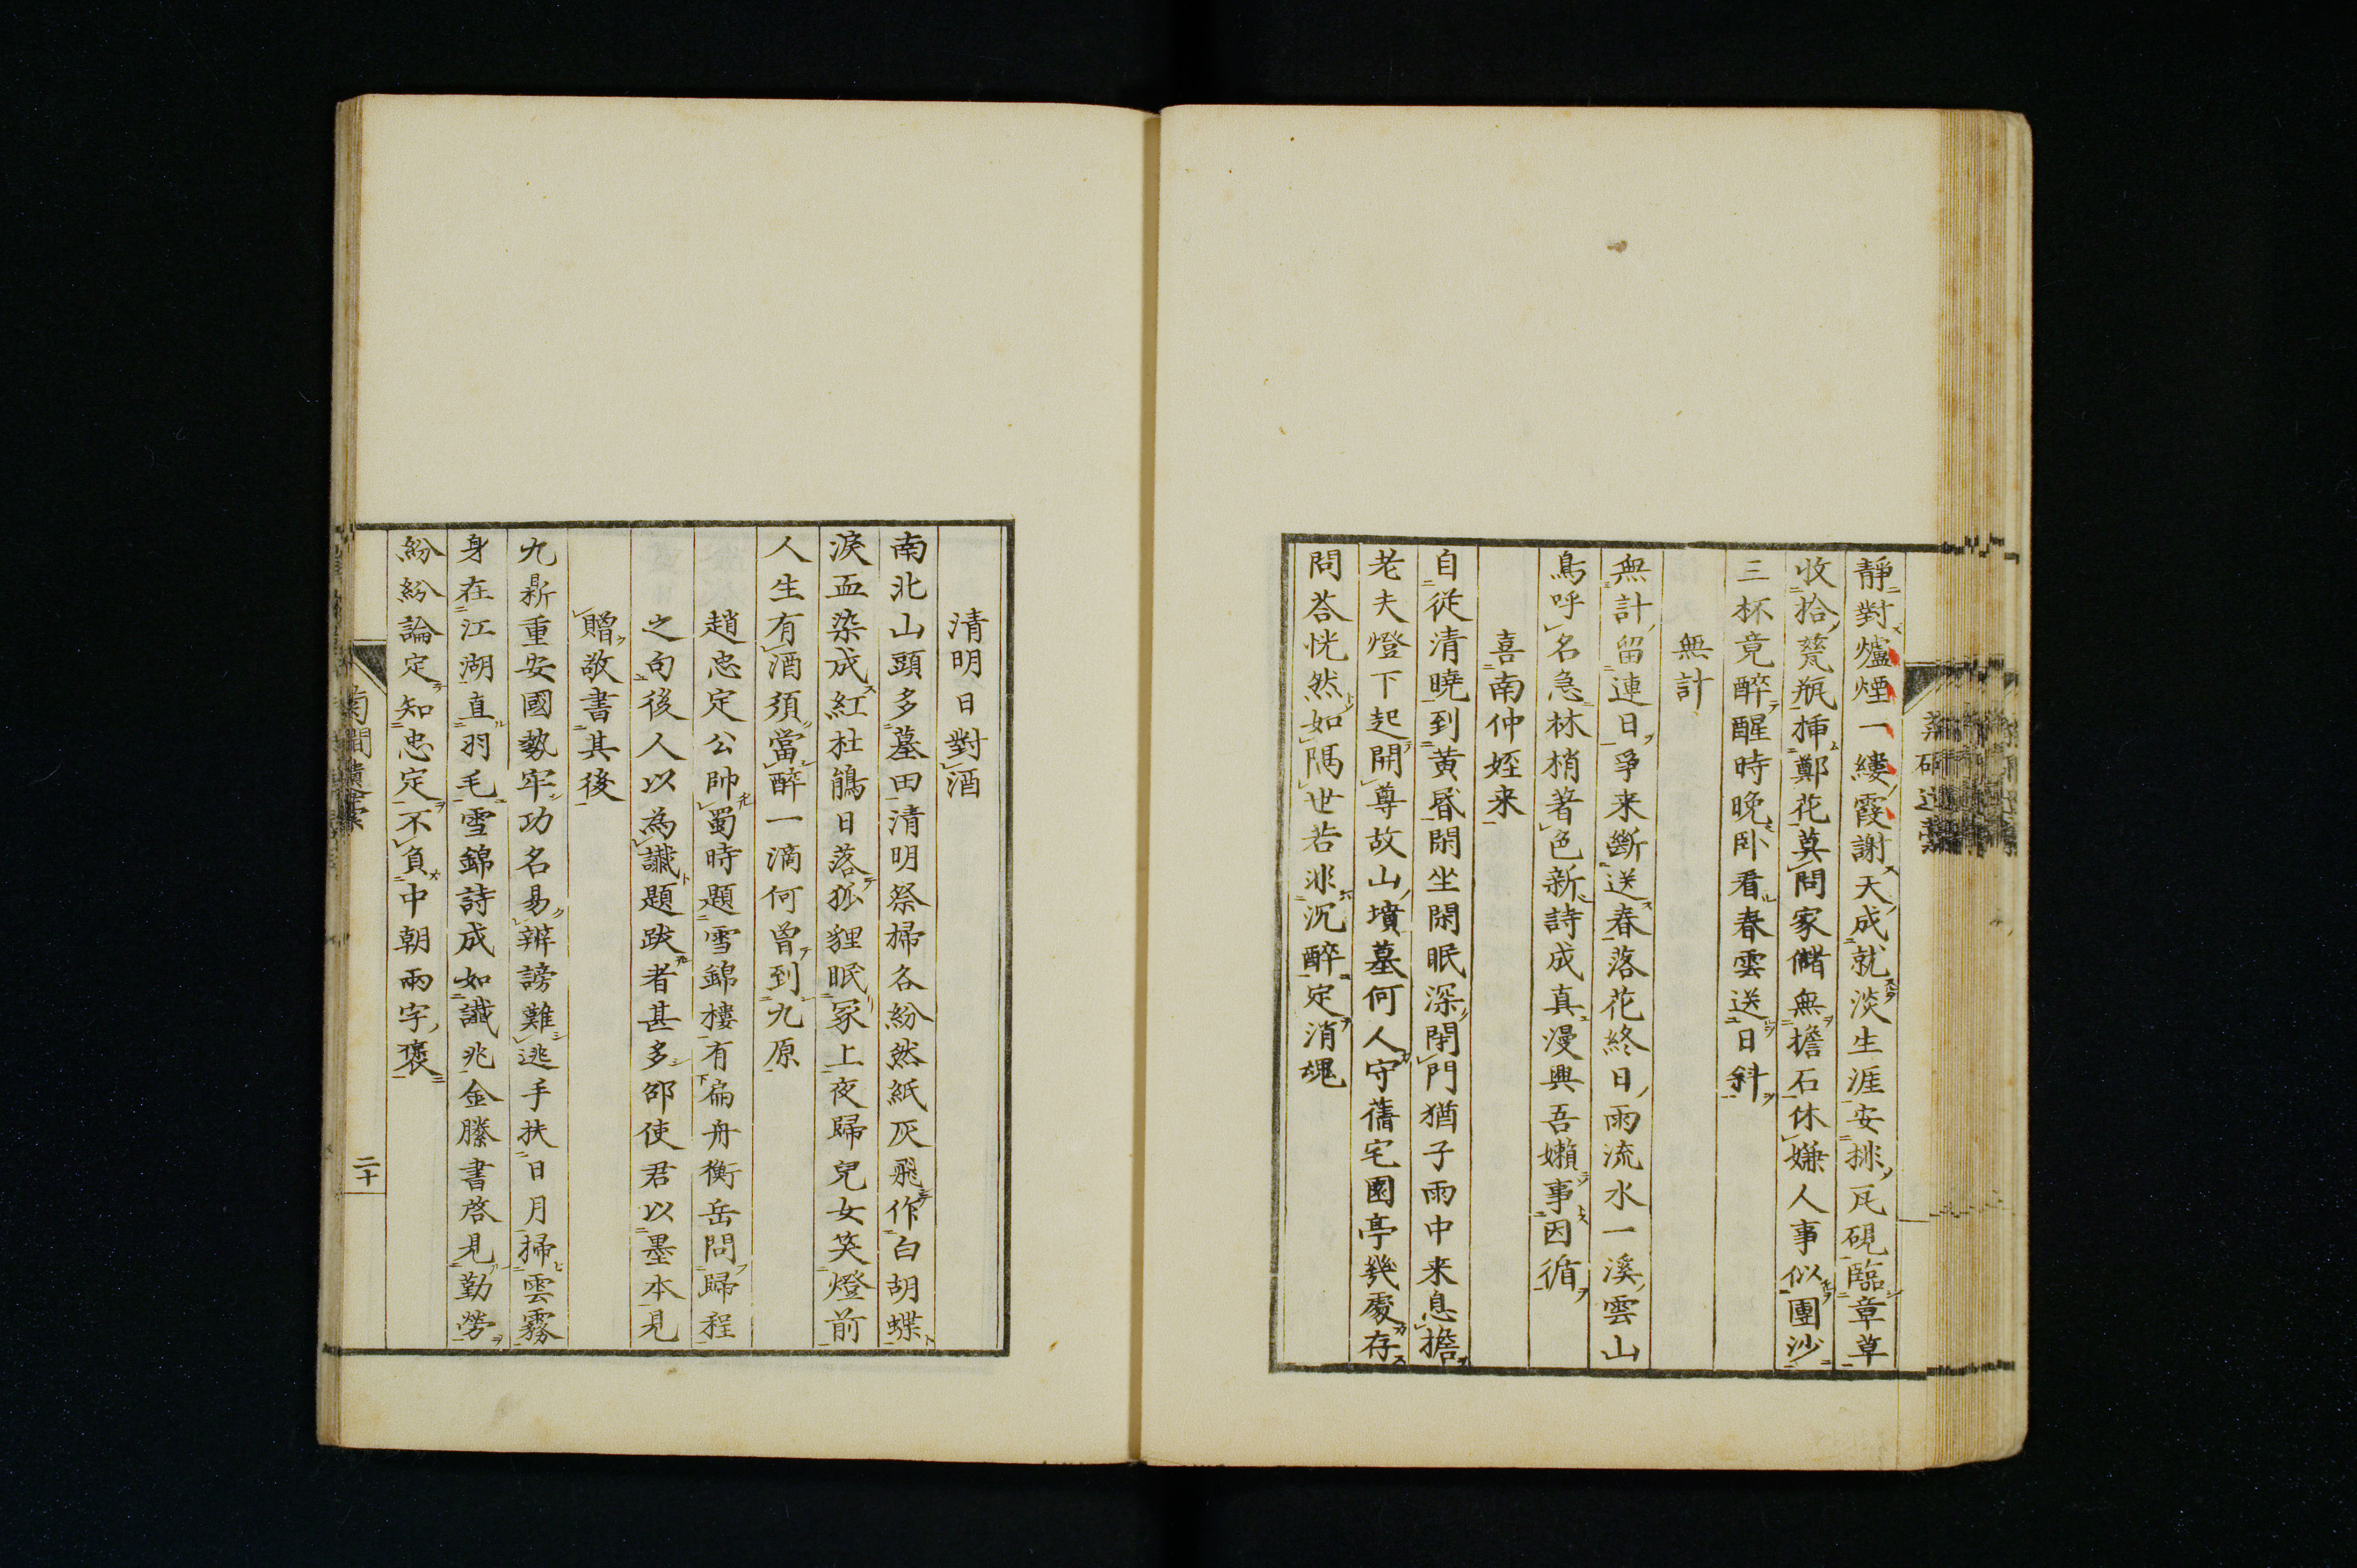 靜對爐煙一縷霞謝天成就淡生涯安排瓦硯臨章草
收拾甆瓶揷鄭花莫問家儲無擔石休嫌人事似團沙
三杯竟醉醒時晚卧看春雲送日斜
無計
無計留連日爭来斷送春落花終日雨流水一溪雲山
鳥呼名急林梢著色新詩成真漫興吾嬾事因循
喜南仲姪来
自従清曉到黄昏閑坐閑眠深閉門猶子雨中来息擔
老夫燈下起開尊故山墳墓何人守舊宅園亭幾處存
問荅恍然如隔世若非沉醉定消魂
清明日對酒
南北山頭多墓田清明祭掃各紛然紙灰飛作白胡蝶
淚血染成紅杜鵑日落狐狸眠冢上夜歸兒女笑燈前
人生有酒須當醉一滴何曾到九原
趙忠定公帥蜀時題雪錦樓有扁舟衡岳問歸程
之句後人以為讖題跋者甚多邵使君以墨本見
贈敬書其後
九鼎重安國勢牢功名易辨謗難逃手扶日月掃雲霧
身在江湖直羽毛雪錦詩成如讖兆金縢書啓見勤勞
紛紛論定知忠定不負中朝兩字褒
二十